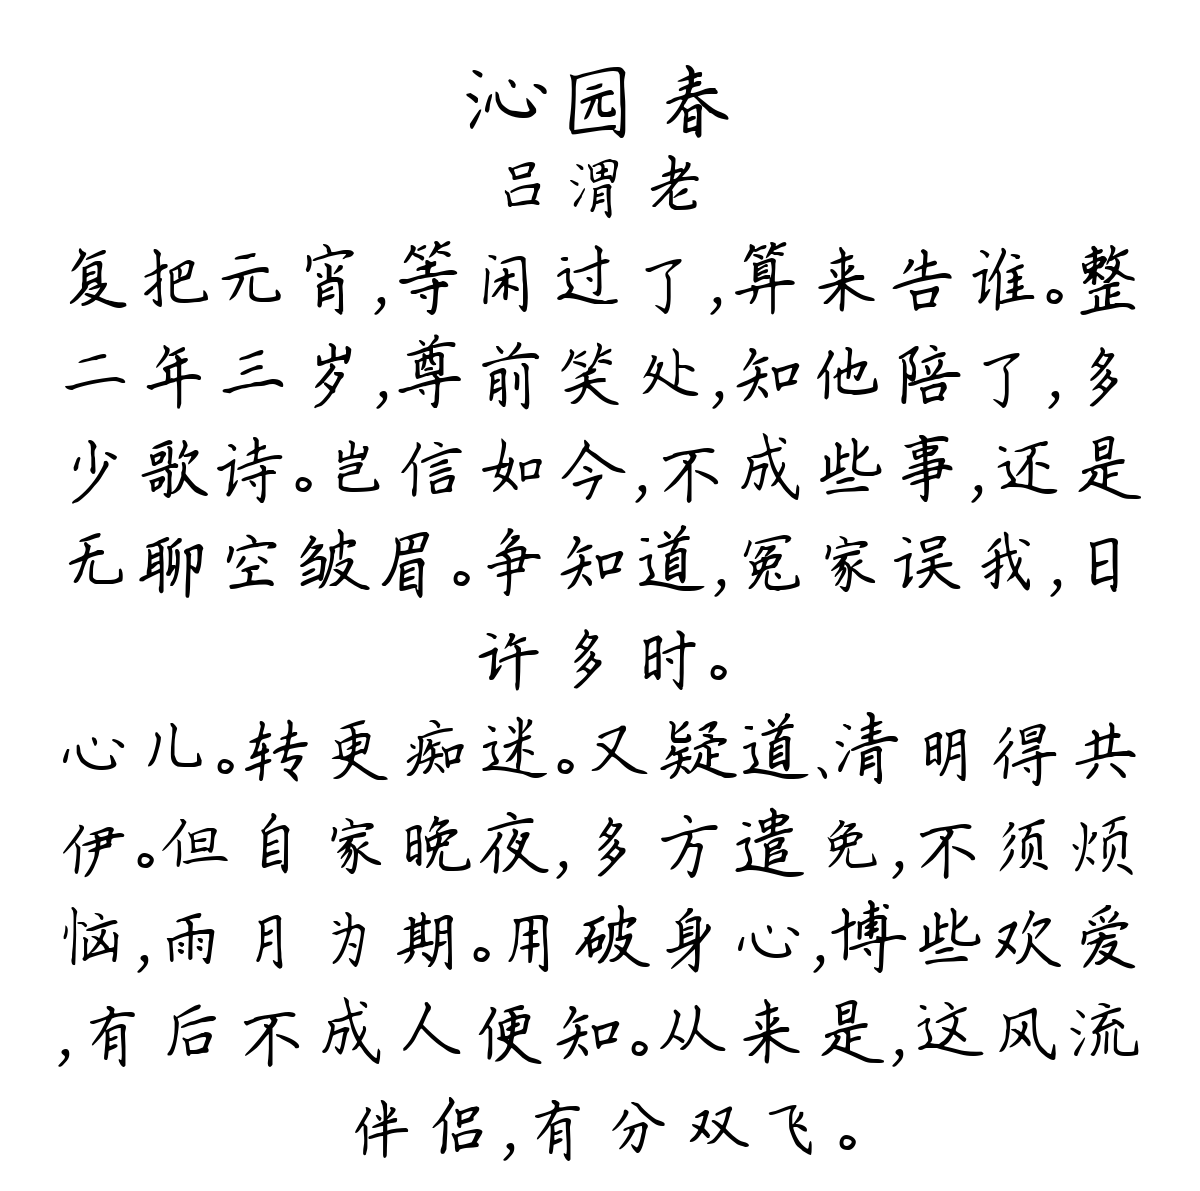 沁园春
吕渭老
复把元宵,等闲过了,算来告谁。整
二年三岁,尊前笑处,知他陪了,多
少歌诗。岂信如今,不成些事,还是
无聊空皱眉。争知道,冤家误我,日
许多时。
心儿。转更痴迷。又疑道、清明得共
伊。但自家晚夜,多方遣免,不须烦
恼,雨月为期。用破身心,博些欢爱
,有后不成人便知。从来是,这风流
伴侣,有分双飞。